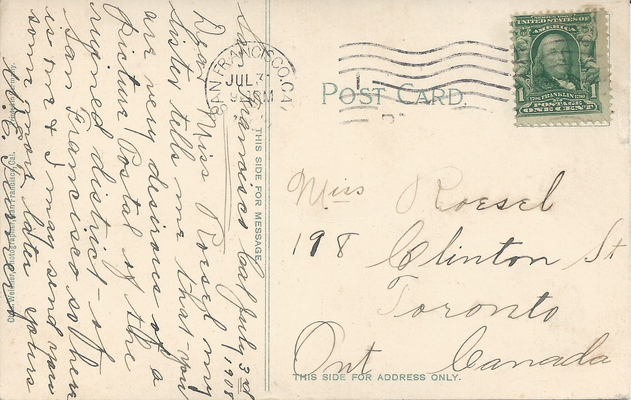 San Francisco Cal July 3rd 1908
Dear Miss Roesel my
sister tells me that you
are very desirous of a
Picture Postal of the
ruined district of
San Francisco so here
is one & I may send you
some more later yours
THIS SIDE FOR MESSAGE
SAN FRANCISCO, CAL.
JUL 3
POST CARD
SERIES 1902
UNITED STATES OF AMERICA
FRANKLIN
1 1
POSTAGE
ONE CENT
Miss Roesel
198 Clinton St
Toronto
Ont Canada
THIS SIDE FOR ADDRESS ONLY.